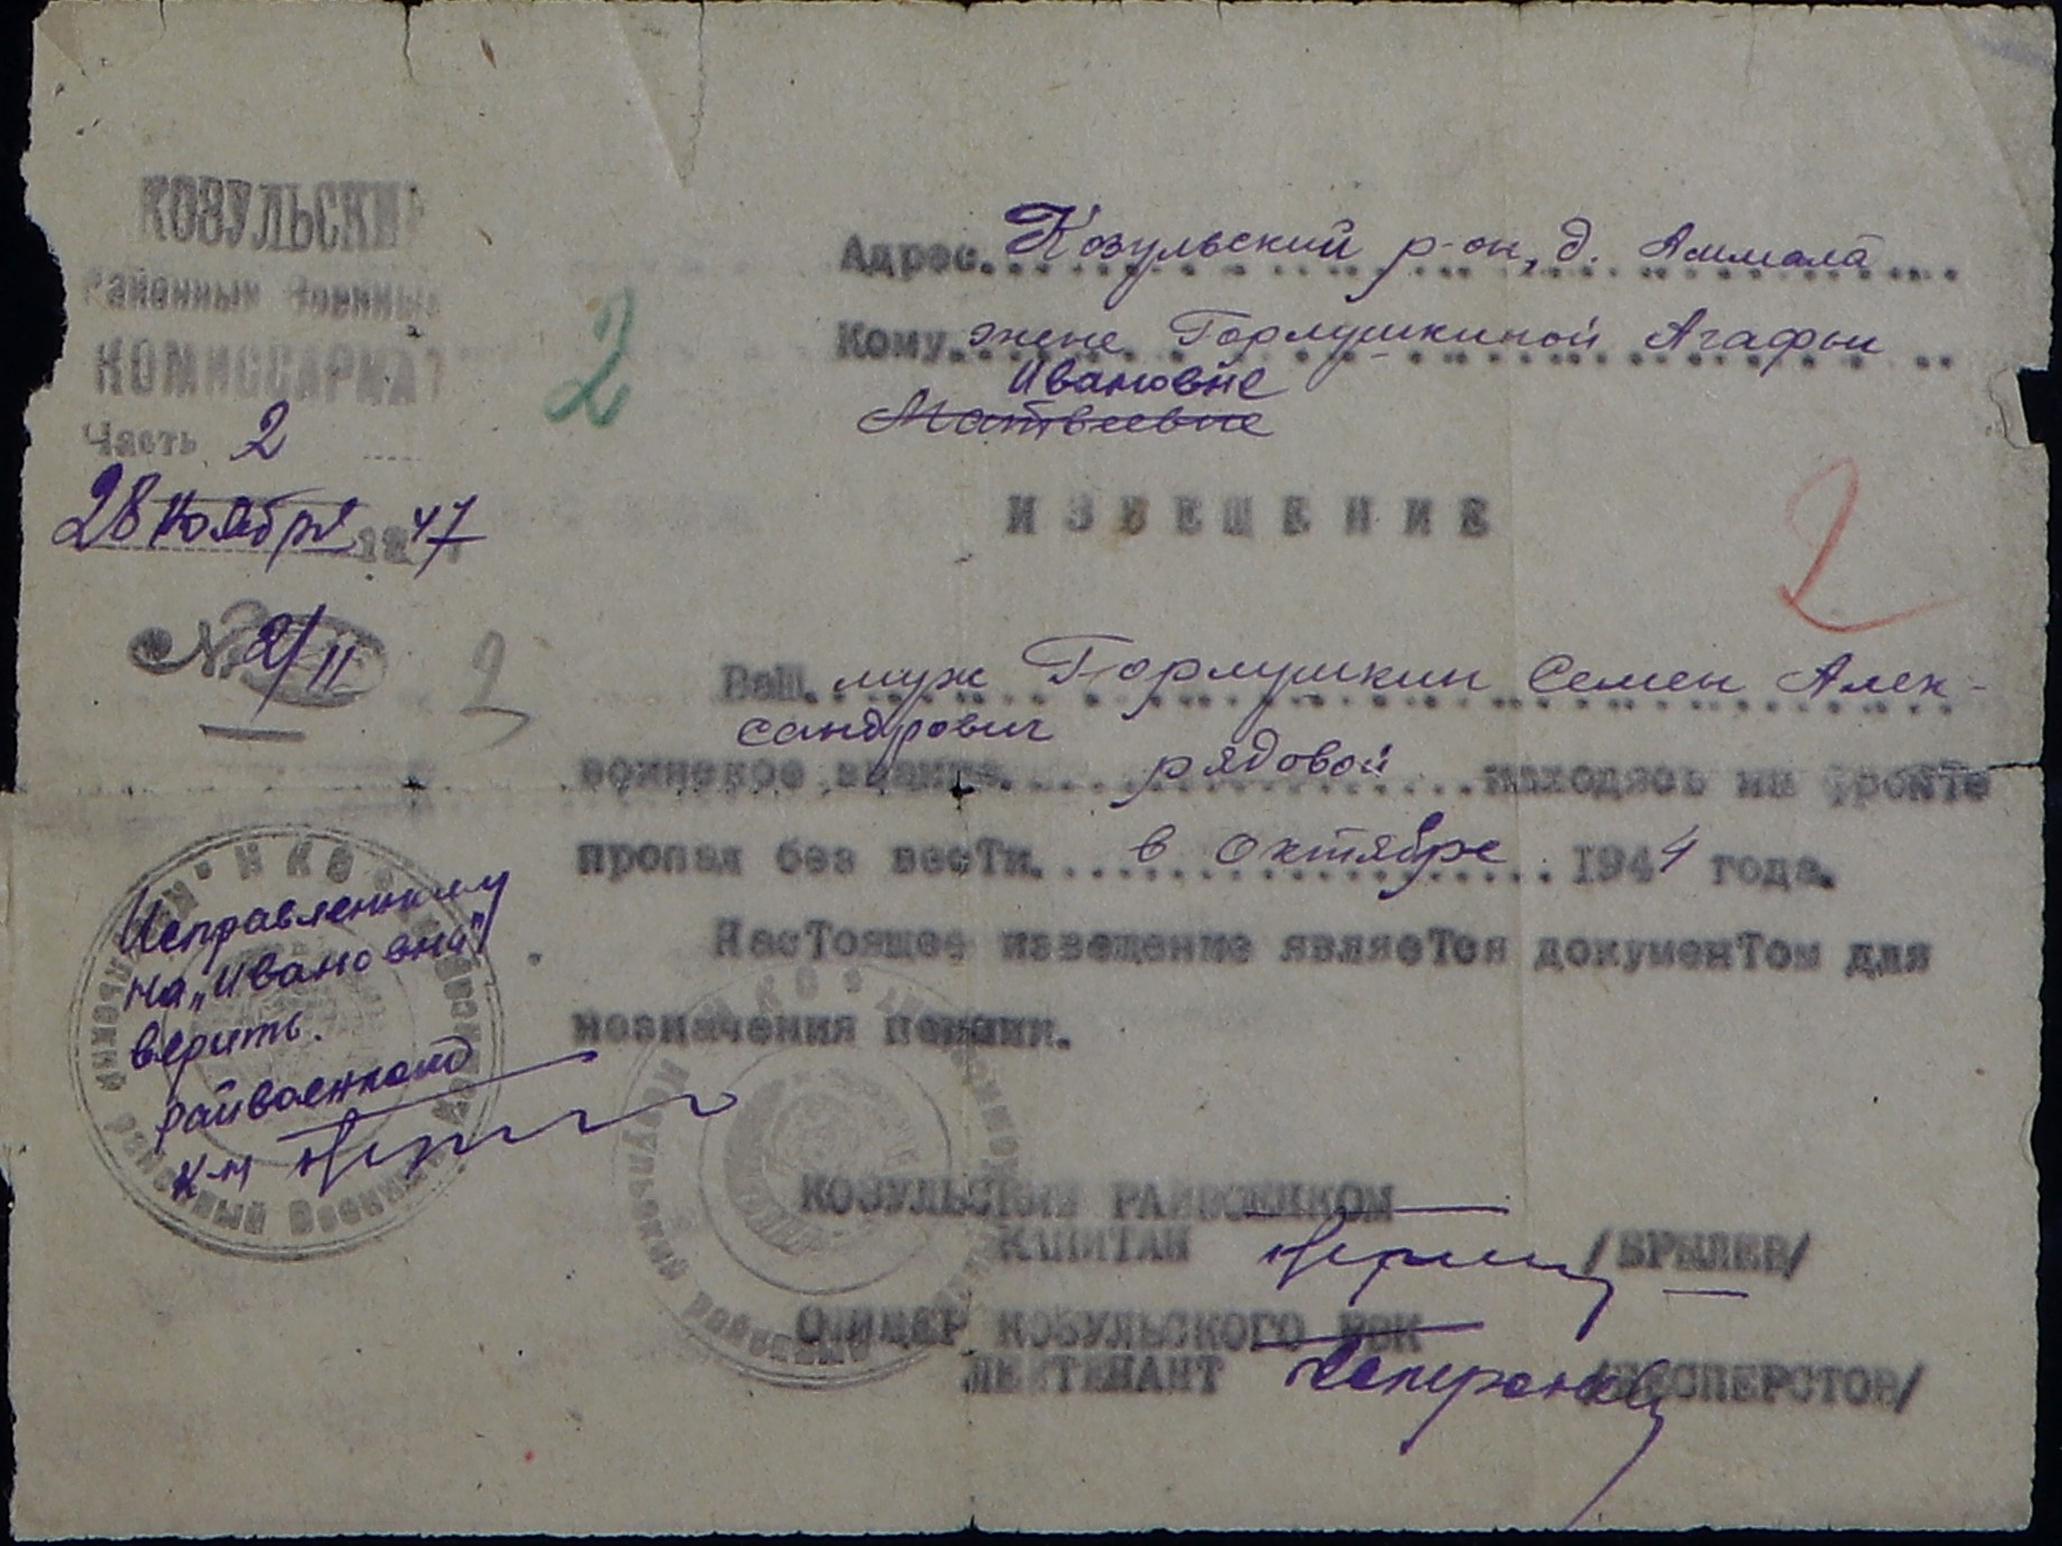 КОЗУЛЬСКИЙ
Районный Военный
КОМИССАРИАТ
Часть 2
28 Ноября 1947
№ 2/11
2
2
2
Адрес. Козульский р-он, д.
Кому. жене Горлушкиной Агафьи
Ивановне
Матвеевне
ИЗВЕЩЕНИЕ
Ваш. муж Горлушкин Семен Алек-
сандрович
воинское звание. рядовой находясь на фронте
пропал без вести. в октябре 1944 года.
Настоящее извещение является документом для
нозначения пенсии.
Исправленному
на „Ивановна"
верить.
Райвоенком
к-н
КОЗУЛЬСКИЙ РАЙВОЕНКОМ
КАПИТАН /БРЫЛЕВ/
ОФИЦЕР КОЗУЛЬСКОГО РВК
ЛЕЙТЕНАНТ